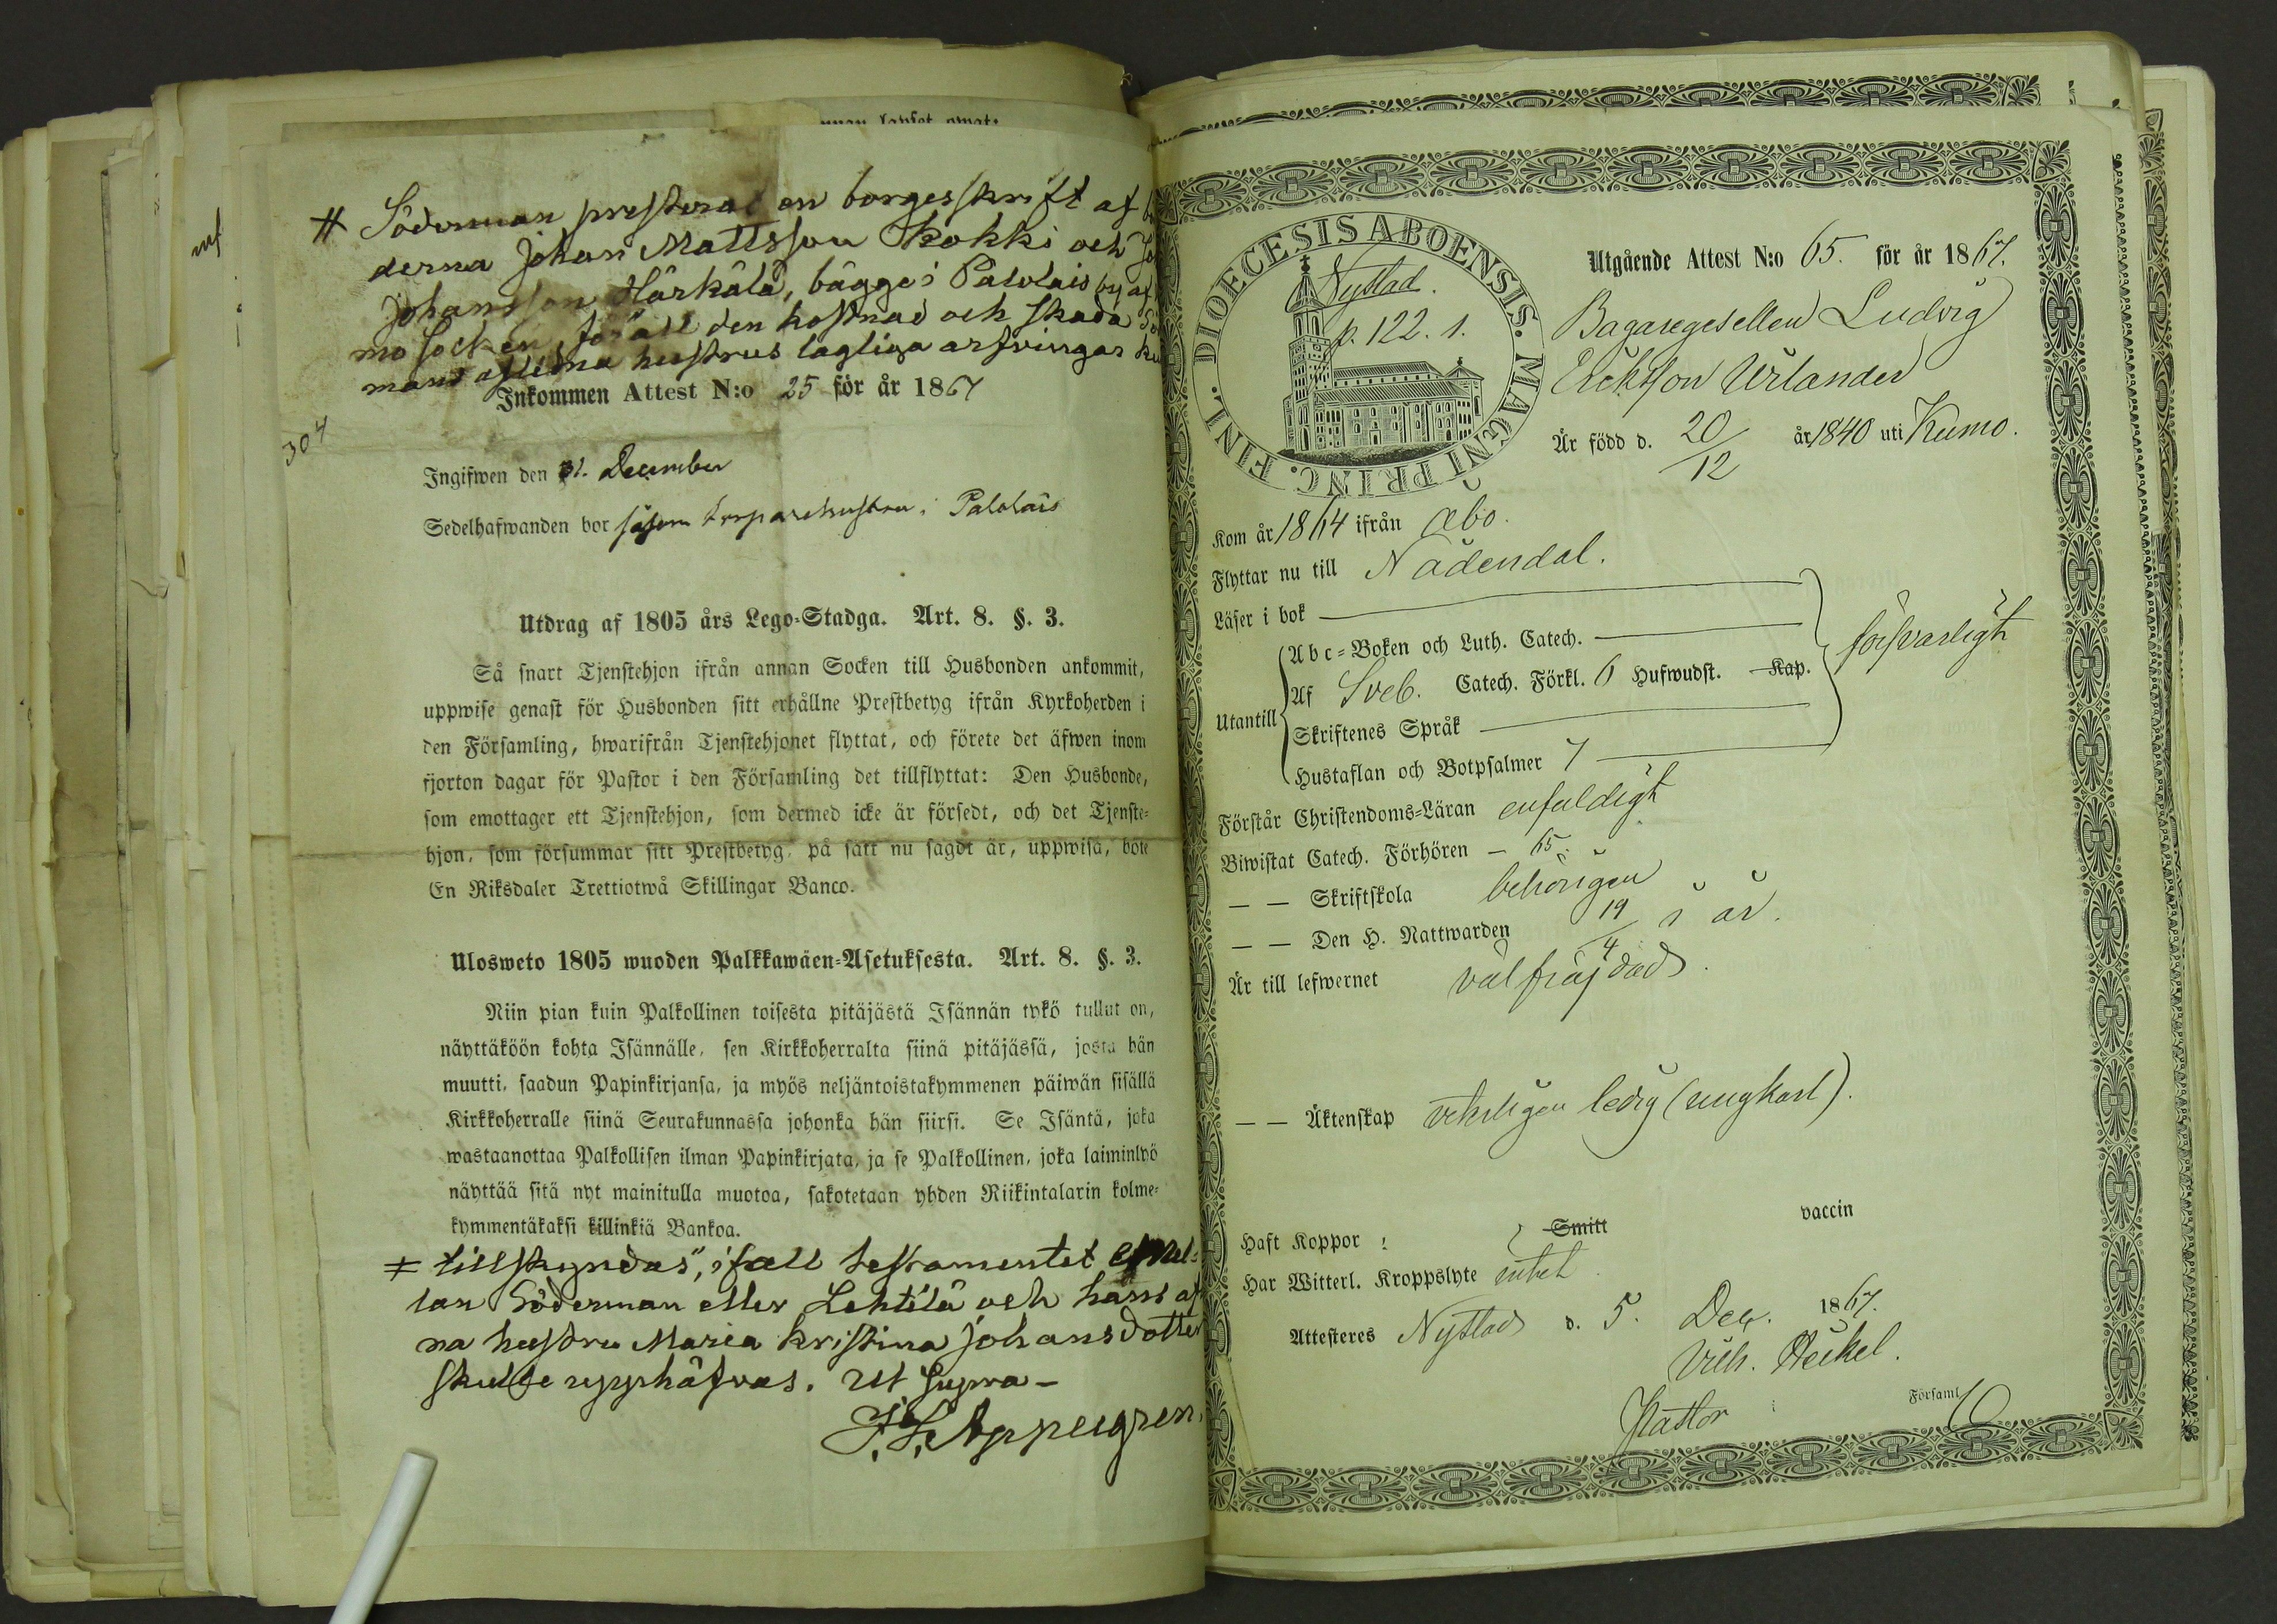 # Söderman presterat en borgesskrift af
derna Johan Mattsson Kokki och
Johansson Härkälä, bägge i Palolais by af
mo socken, för all den kostnad och skada
mans aflidna hustrus lagliga arfvingar
Inkommen Attest N:o 25 för år 1867
304
Ingifwen den 31. December
Sedelhafwanden bor såsom torparehustru i Palolais
Utdrag af 1805 års Lego-Stadga. Art. 8. §. 3.
Så snart Tjenstehjon ifrån annan Socken till Husbonden ankommit,
uppwise genast för Husbonden sitt erhållne Prestbetyg ifrån Kyrkoherden i
den Församling, hwarifrån Tjenstehjonet flyttat, och förete det äfwen inom
fjorton dagar för Pastor i den Församling det tillflyttat: Den Husbonde,
som emottager ett Tjenstehjon, som dermed icke är försedt, och det Tjenste-
hjon, som försummar sitt Prestbetyg, på sätt nu sagdt är, uppwisa, böte
En Riksdaler Trettiotwå Skillingar Banco.
Ulosweto 1805 wuoden Palkkawäen-Asetuksesta. Art. 8. §. 3.
Niin pian kuin Palkollinen toisesta pitäjästä Isännän tykö tullut on,
näyttäköön kohta Isännälle, sen Kirkkoherralta siinä pitäjässä, josta hän
muutti, saadun Papinkirjansa, ja myös neljäntoistakymmenen päiwän sisällä
Kirkkoherralle siinä Seurakunnassa johonka hän siirsi. Se Isäntä, joka
wastaanottaa Palkollisen ilman Papinkirjata, ja se Palkollinen, joka laiminlyö
näyttää sitä nyt mainitulla muotoa, sakotetaan yhden Riikintalarin kolme-
kymmentäkaksi killinkiä Bankoa.
# tillskyndas", ifall testamentet emel-
lan Söderman eller Lehtilä och hans af
na hustru Maria Kristina Johansdotter
skulle upphäfvas. Ut supra –
Appelgren
DIOECESIS ABOENSIS. MAGNI PRINC. FINL.
Nystad.
p. 122. 1.
Utgående Attest N:o 65. för år 1867.
Bagaregesellen Ludvig
Erickson Urlander
Är född d. 20/12 år 1840 uti Kumo.
Kom år 1864 ifrån Åbo.
Flyttar nu till Nådendal.
Läser i bok
Utantill
Abc-Boken och Luth. Catech.
Af Sveb. Catech. Förkl. 6 Hufwudst. Kap.
Skriftenes Språk
Hustaflan och Botpsalmer 7
försvarligt
Förstår Christendoms-Läran enfaldigt
Biwistat Catech. Förhören – 65.
— — Skriftskola behörigen
— — Den H. Nattwarden 19/4 i år.
Är till lefwernet välfräjdad.
— — Äktenskap vehrligen ledig (ungkarl).
Haft Koppor Smitt vaccin
Har Witterl. Kroppslyte intet
Attesteres Nystad d. 5. Dec. 1867.
Vilh. Heikel.
Pastor Församl